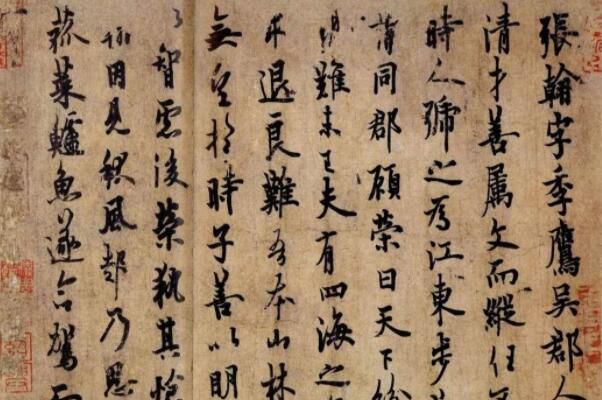 張翰字季鷹吳郡人
清才善屬文而縱任
時人號之為江東步
謂同郡顧榮曰天下紛
難未已夫有四海之
求退良難吾本山林
無望於時子善以明
智慮後榮執其愴
翰因見秋風起乃思
菰菜鱸魚遂命駕而